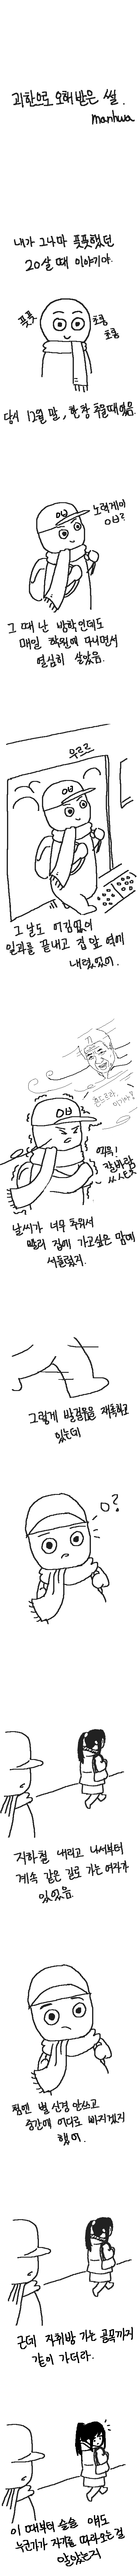 괴한으로 오해 받은 썰.
manhwa
내가 그나마 풋풋했던
20살 때 이야기야.
풋풋
초롱
초롱
당시 12월 말, 한창 추울때였음.
노력게이
OB?
OB
그 때 난 방학인데도
매일 학원에 다니면서
열심히 살았음.
우르르
OB
그 날도 어김없이
일과를 끝내고 집 앞 역에
내렸었어.
OB
으윽!
칼바람
ㅆㅅㅌㅊ
날씨가 너무 추워서
빨리 집에 가고싶은 맘에
서둘렀지.
그렇게 발걸음을 재촉하고
있는데
o?
지하철 내리고 나서부터
계속 같은 길로 가는 여자가
있었음.
첨엔 별 신경 안쓰고
중간에 어디로 빠지겠지
했어.
근데 자취방 가는 골목까지
같이 가더라.
이 때부터 슬슬 얘도
누군가가 자기를 따라오는걸
알았는지